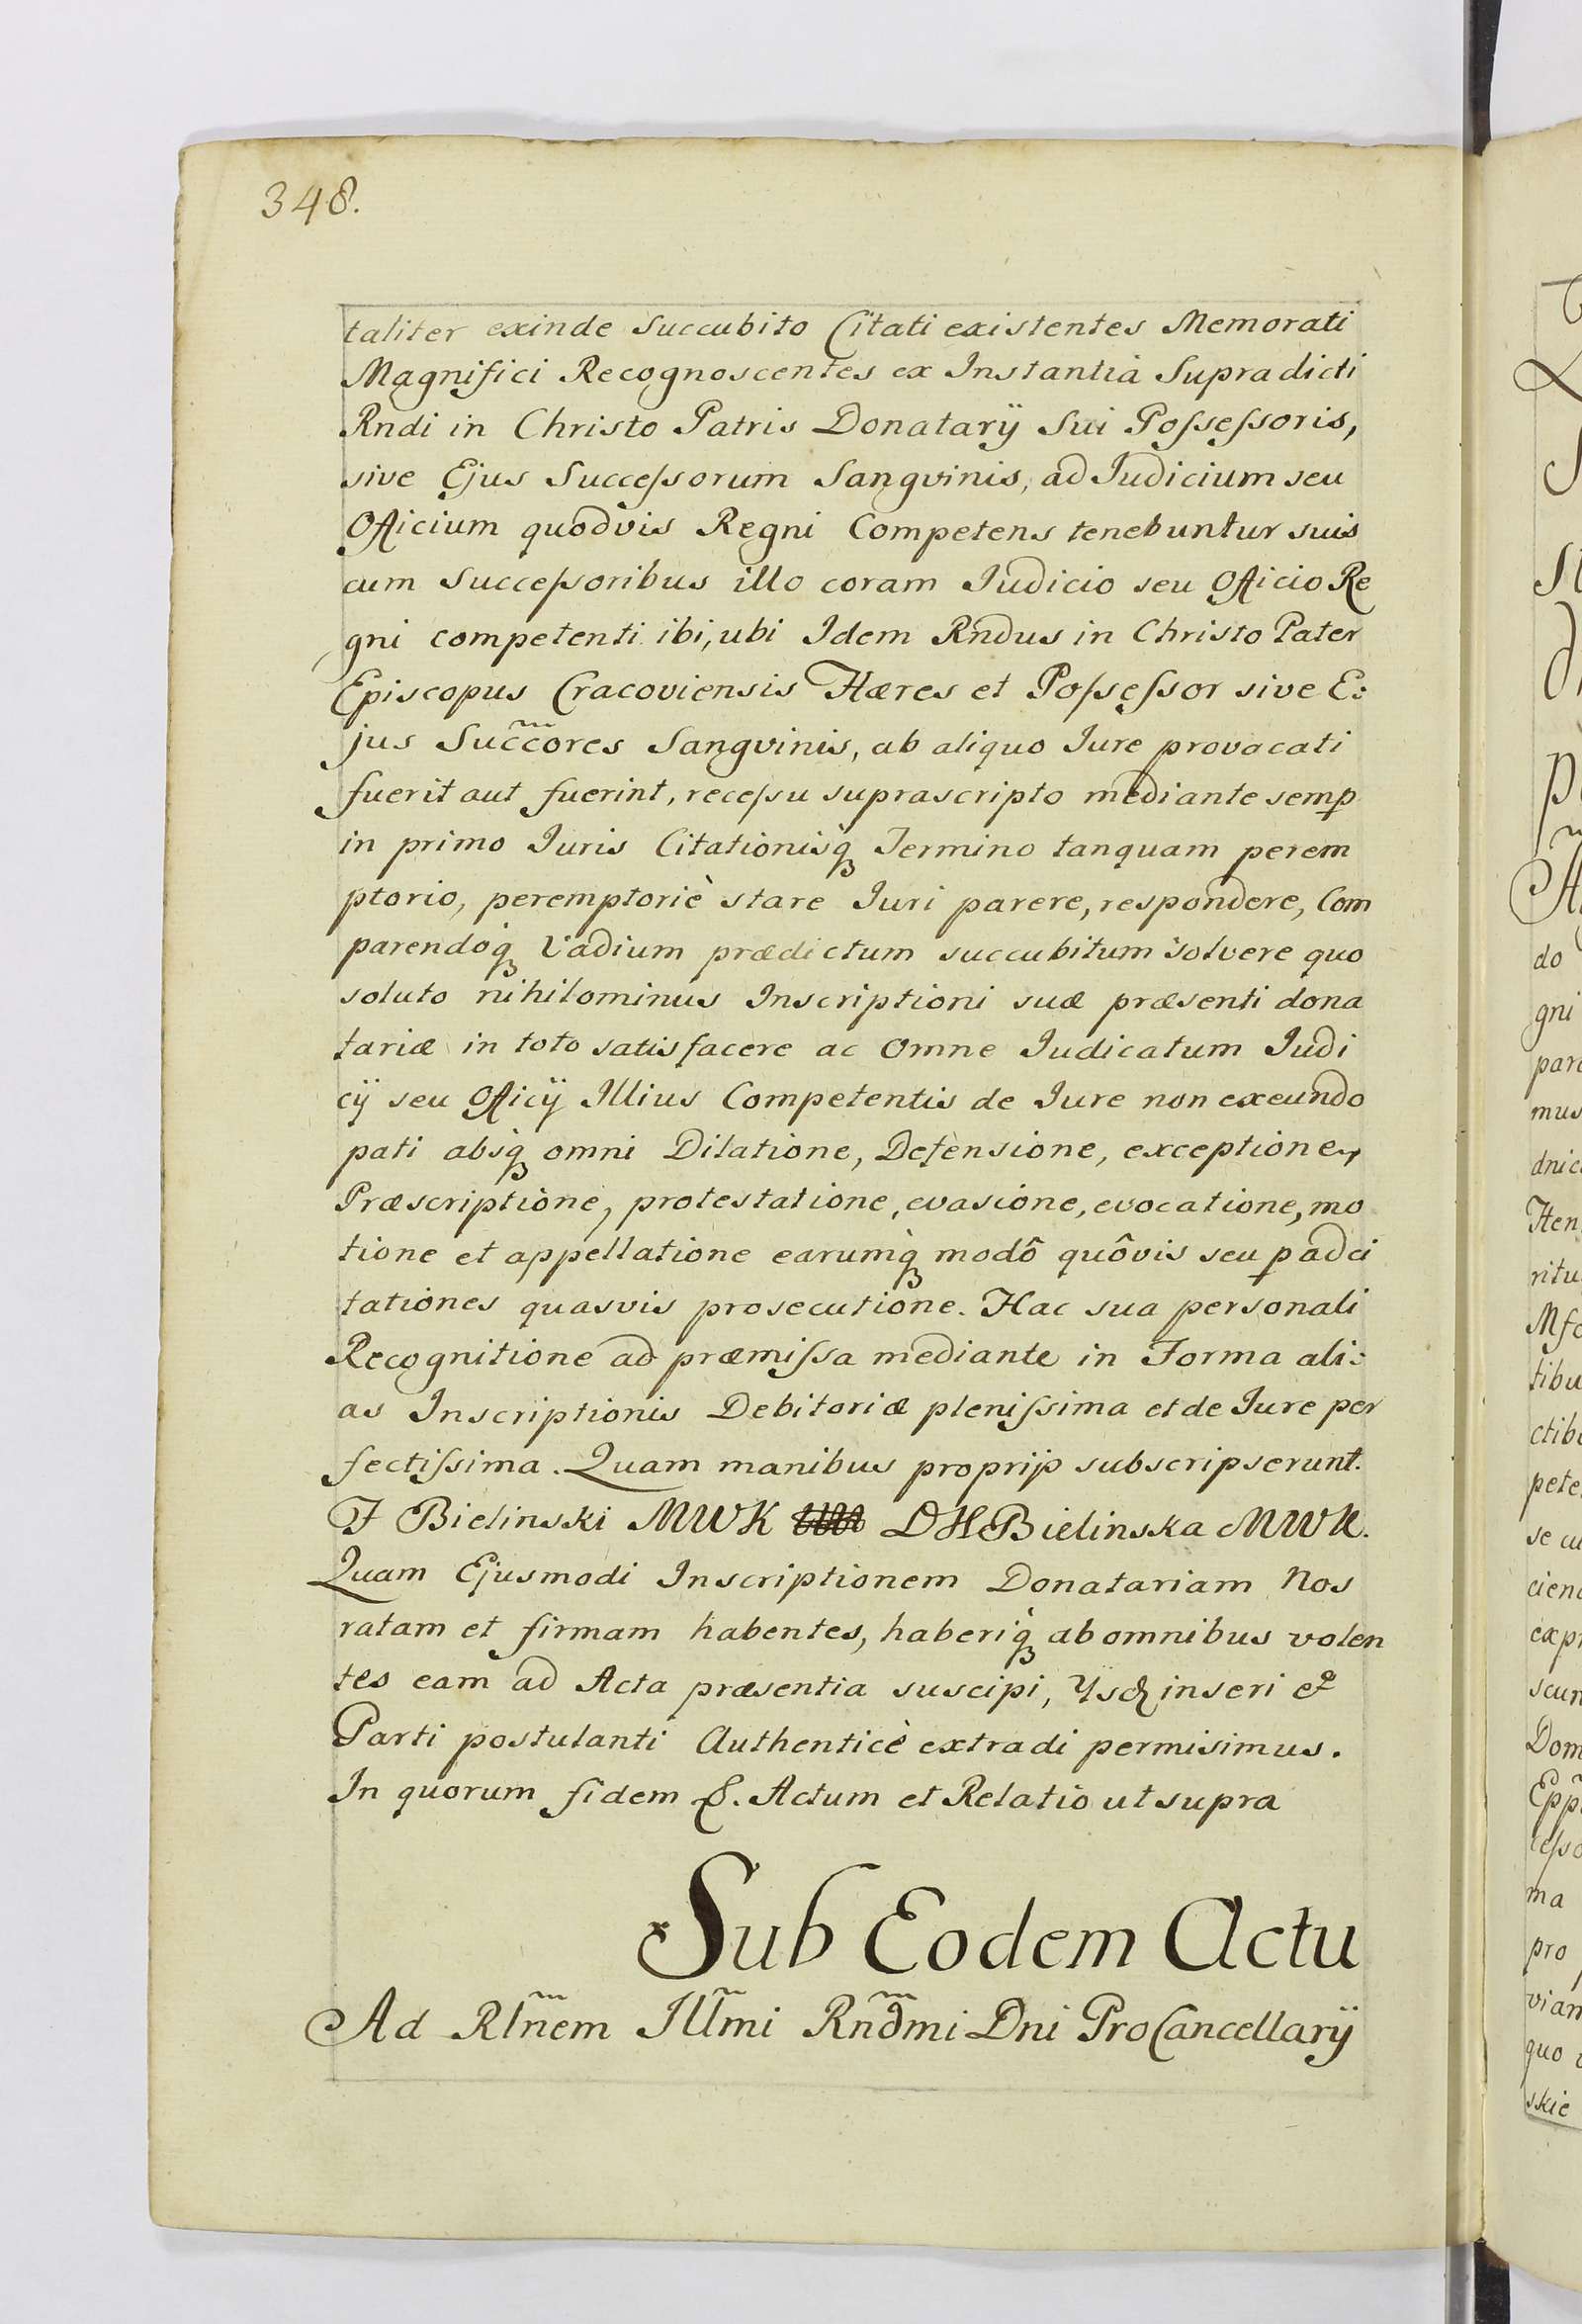 348.
taliter exinde Succubito Citati existentes Memorati
Magnifici Recognoscentes ex Instantiâ Supradicti
Rndi in Christo Patris Donatarÿ Sui Poſseſsoris,
sive Ejus Succeſsorum Sangvinis, ad Iudicium seu
Officium quodvis Regni Competens tenebuntur suis
cum Succeſsoribus illo coram Iudicio seu Officio Re
gni competenti ibi, ubi Idem Rndus in Christo Pater
Episcopus Cracoviensis Hæres et Poſseſsor sive E:
jus Succ̃ores Sangvinis, ab aliquo Iure provocati
fuerit aut fuerint, receſsu suprascripto mediante semꝑ
in primo Iuris Citationisq́ꝫ Termino tanquam perem
ptorio, peremptoriè stare Iuri parere, respondere, Com
parendoq́ꝫ Vadium prædictum succubitum solvere quo
soluto nihilominus Inscriptioni suæ præsenti dona
tariæ in toto satisfacere ac Omne Iudicatum Iudi
cÿ seu Officÿ Illius Competentis de Iure non exeundo
pati absq́ꝫ omni Dilatione, Defensione, exceptione,
Præscriptione, protestatione, evasione, evocatione, mo
tione et appellatione earumq́ꝫ modô quôvis seu ꝑ adci
tationes quasvis prosecutione. Hac sua personali
Recognitione ad præmiſsa mediante in Forma ali:
as Inscriptionis Debitoriæ pleniſsima et de Iure per
fectiſsima. Quam manibus proprijs subscripserunt.
F Bielinski MWK DHBielinska MWK.
Quam Ejusmodi Inscriptionem Donatariam Nos
ratam et firmam habentes, haberiq́ꝫ ab omnibus volen
tes eam ad Acta præsentia suscipi, Ysqꝫ inseri et
Parti postulanti Authenticè extradi permisimus.
In quorum fidem &. Actum et Relatio ut supra
Sub Eodem Actu
Ad Rlñem Illm̃i Rnd̃mi Dni ProCancellarÿ